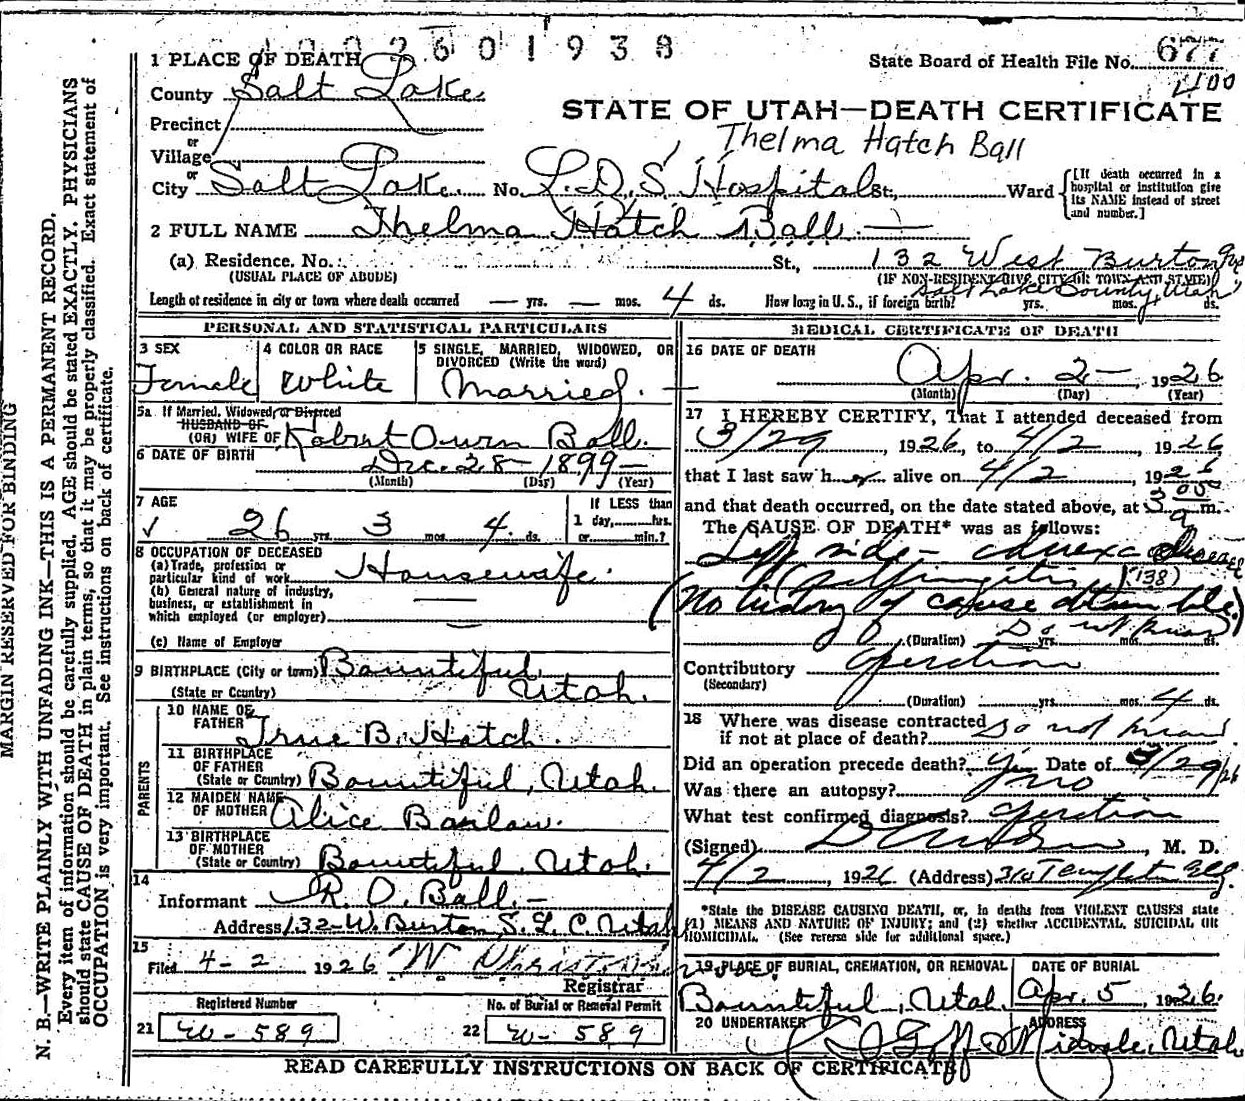 1002601938
State Board of Health File No. 677
1 PLACE OF DEATH
County Salt Lake
STATE OF UTAH—DEATH CERTIFICATE
Precinct
Thelma Hatch Ball
or
Village
or
City Salt Lake No. L.D.S. Hospital St., Ward [If death occurred in a hospital or institution give its NAME instead of street and number.]
2 FULL NAME Thelma Hatch Ball
(a) Residence. No. St., 132 West Burton Ave
(USUAL PLACE OF ABODE) (IF NON-RESIDENT GIVE CITY OR TOWN AND STATE)
Salt Lake County, Utah
Length of residence in city or town where death occurred — yrs. — mos. 4 ds. How long in U.S., if foreign birth? yrs. mos. ds.
PERSONAL AND STATISTICAL PARTICULARS
3 SEX
Female
4 COLOR OR RACE
White
5 SINGLE, MARRIED, WIDOWED, OR
DIVORCED (Write the word)
Married.
5a If Married, Widowed, or Divorced
HUSBAND OF
(OR) WIFE OF Robert Owen Ball.
6 DATE OF BIRTH Dec. 28 - 1899 -
(Month) (Day) (Year)
7 AGE If LESS than
26 yrs. 3 mos. 4 ds. 1 day, hrs.
or min.?
8 OCCUPATION OF DECEASED
(a) Trade, profession or
particular kind of work Housewife.
(b) General nature of industry,
business, or establishment in
which employed (or employer)
(c) Name of Employer
9 BIRTHPLACE (City or town) Bountiful,
(State or Country) Utah.
PARENTS
10 NAME OF
FATHER True B. Hatch.
11 BIRTHPLACE
OF FATHER
(State or Country) Bountiful, Utah.
12 MAIDEN NAME
OF MOTHER Alice Barlow.
13 BIRTHPLACE
OF MOTHER
(State or Country) Bountiful, Utah.
14
Informant R. O. Ball.-
Address 132-W. Burton, S. L. C. Utah
15
Filed 4-2 1926
Registrar
Registered Number No. of Burial or Removal Permit
21 W-589 22 W-589
MEDICAL CERTIFICATE OF DEATH
16 DATE OF DEATH
Apr. 2 - 1926
(Month) (Day) (Year)
17 I HEREBY CERTIFY, That I attended deceased from
3/29, 1926, to 4/2, 1926
that I last saw her alive on 4/2, 1926
and that death occurred, on the date stated above, at 3 00 a m.
The CAUSE OF DEATH* was as follows:
Left side -
(Salpingitis) (138)
(No history of cause
(Duration) Do not know yrs. mos. ds.
Contributory operation
(Secondary)
(Duration) yrs. mos. 4 ds.
18 Where was disease contracted
if not at place of death? Do not know
Did an operation precede death? Yes Date of 3/29/26
Was there an autopsy? no
What test confirmed diagnosis? operation
(Signed) , M. D.
4/2, 1926 (Address)
*State the DISEASE CAUSING DEATH, or, in deaths from VIOLENT CAUSES state
(1) MEANS AND NATURE OF INJURY; and (2) whether ACCIDENTAL, SUICIDAL OR
HOMICIDAL. (See reverse side for additional space.)
19 PLACE OF BURIAL, CREMATION, OR REMOVAL
Bountiful, Utah.
DATE OF BURIAL
Apr. 5, 1926.
20 UNDERTAKER
ADDRESS
Midvale, Utah
READ CAREFULLY INSTRUCTIONS ON BACK OF CERTIFICATE
MARGIN RESERVED FOR BINDING
N. B.—WRITE PLAINLY WITH UNFADING INK—THIS IS A PERMANENT RECORD.
Every item of information should be carefully supplied. AGE should be stated EXACTLY. PHYSICIANS
should state CAUSE OF DEATH in plain terms, so that it may be properly classified. Exact statement of
OCCUPATION is very important. See instructions on back of certificate.